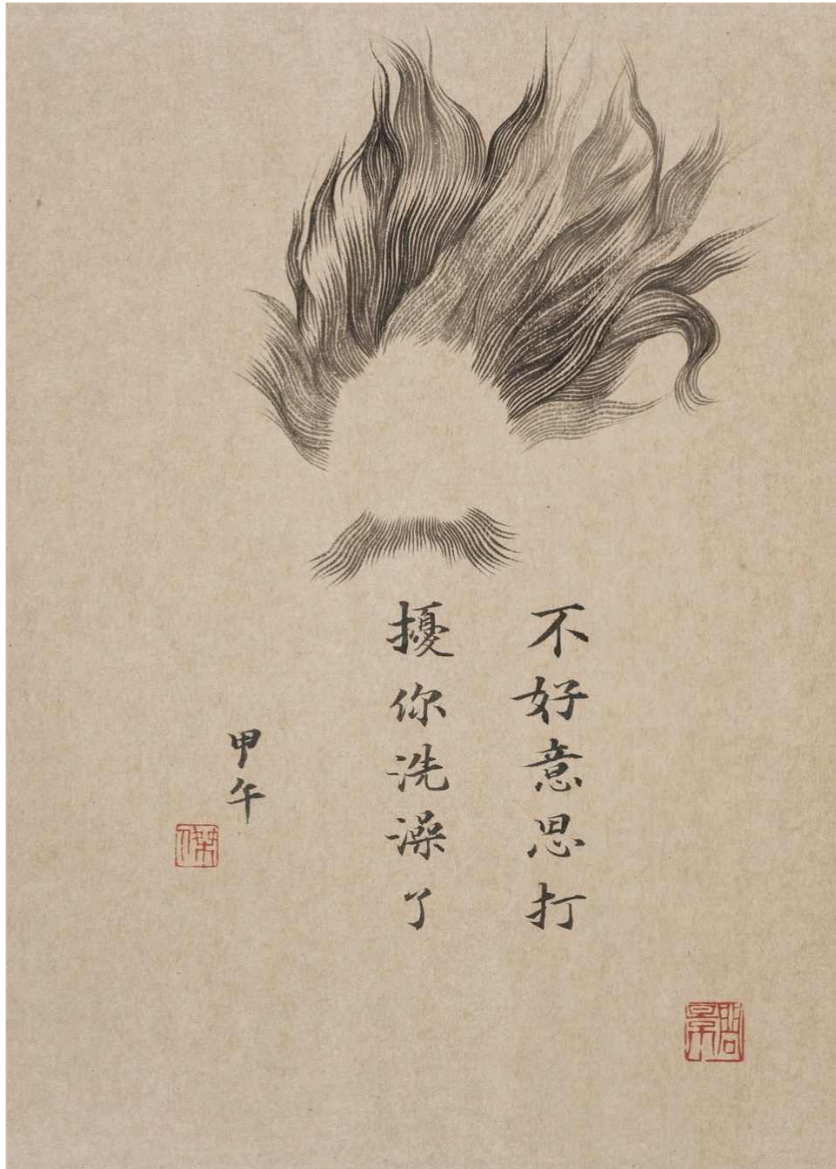 不好意思打
擾你洗澡了
甲午